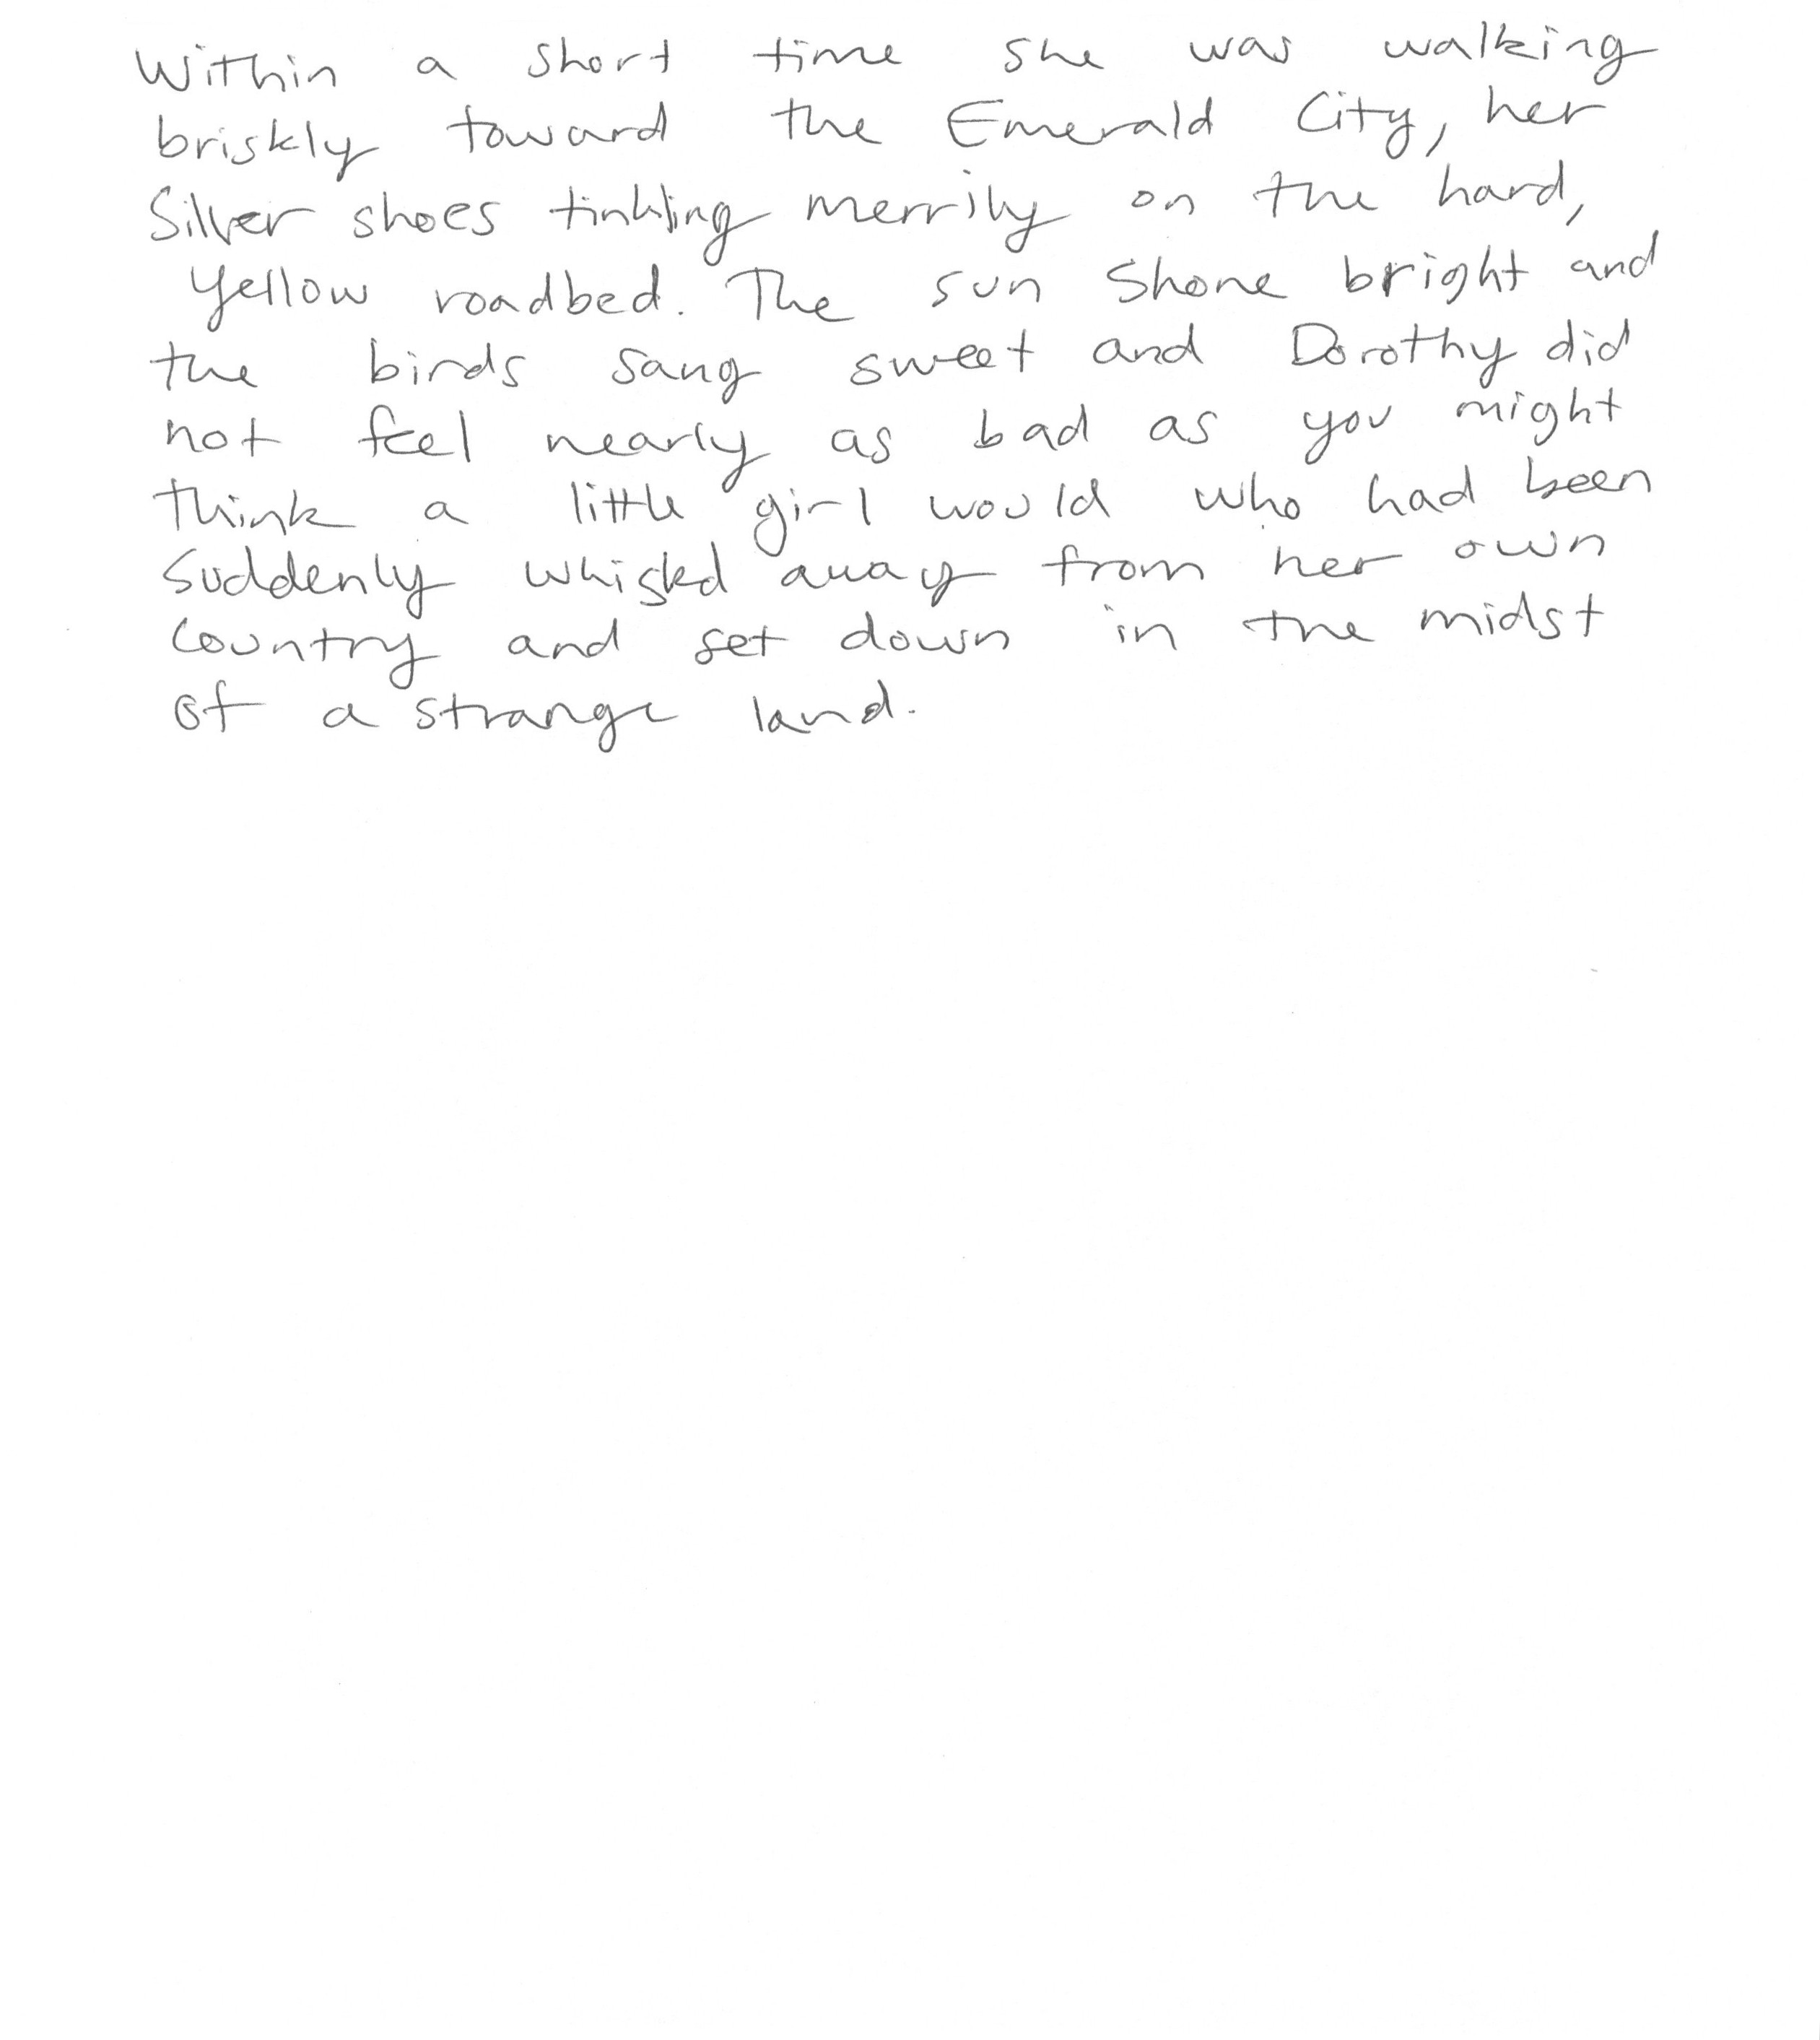 Within a short time she was walking
briskly toward the Emerald City, her
Silver shoes tinkling merrily on the hard,
yellow roadbed. The sun shone bright and
the birds sang sweet and Dorothy did
not feel nearly as bad as you might
think a little girl would who had been
suddenly whisked away from her own
country and set down in the midst
of a strange land.